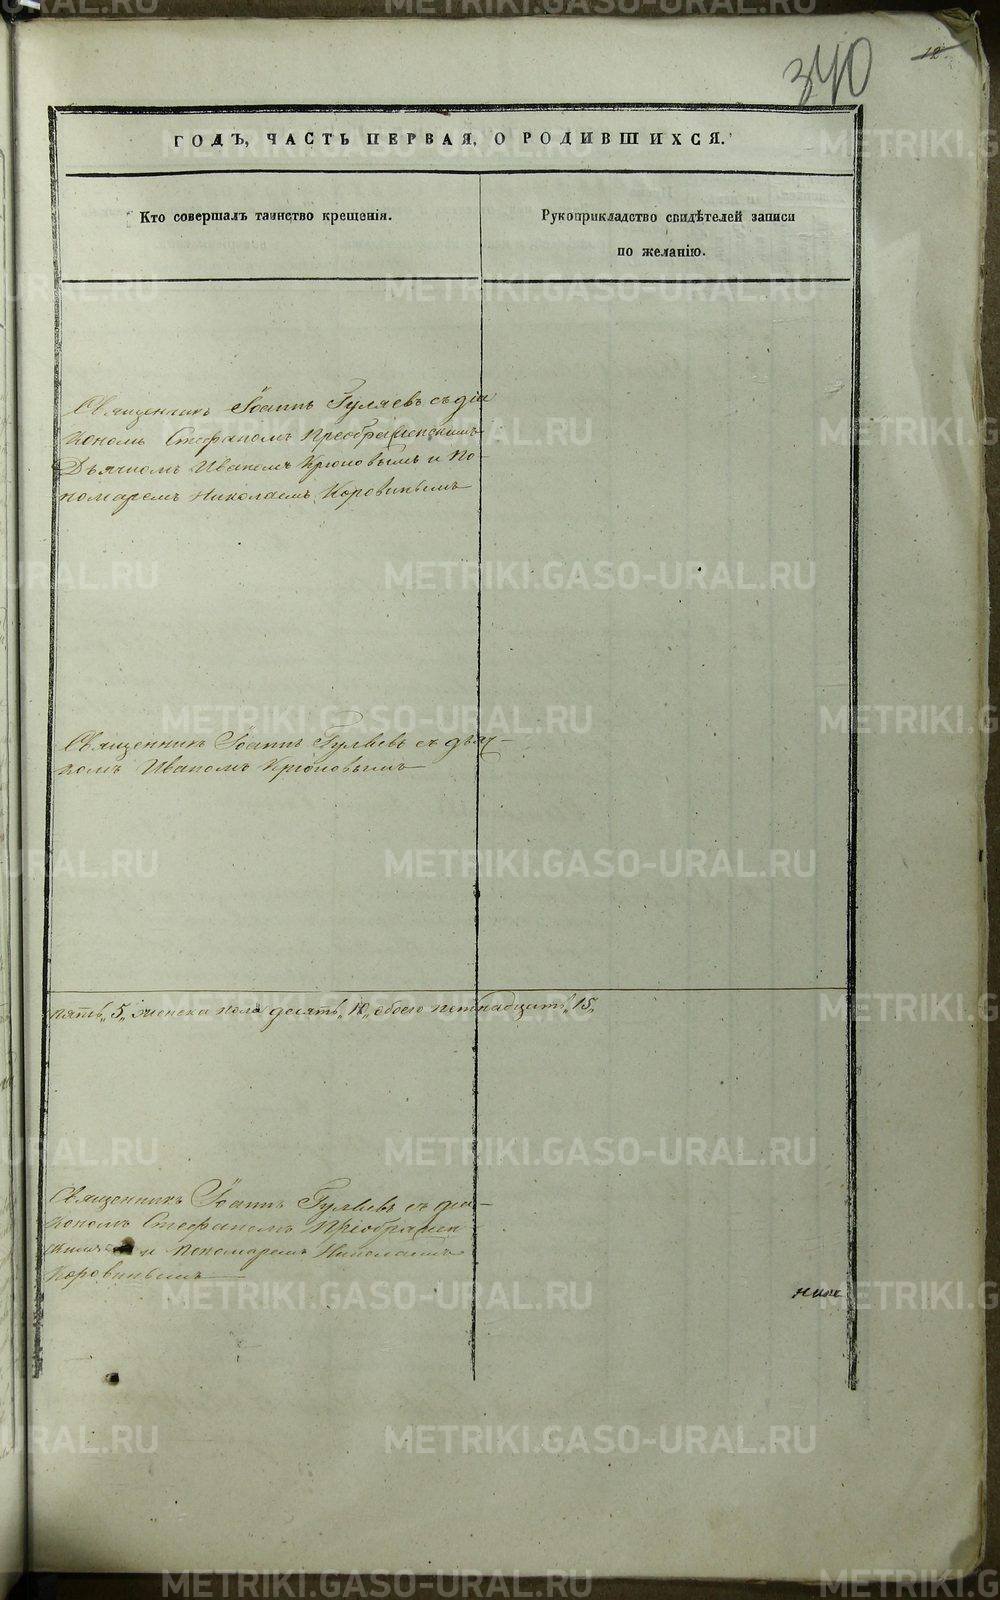 340
12
ГОДЪ, ЧАСТЬ ПЕРВАЯ, О РОДИВШИХСЯ.
Кто совершалъ таинство крещенія.
Рукоприкладство свидѣтелей записи
по желанію.
Священникъ Іоаннъ Гуляевъ съ діа
кономъ Стефаномъ Преображенскимъ
Дьячкомъ Иваномъ Крюковымъ и По-
номаремъ Николаемъ Коровинымъ
Священникъ Іоаннъ Гуляевъ съ дьяч-
комъ Иваномъ Крюковымъ
пять „5„ женска пола десять „10„ обоего пятнадцать „15„
Священникъ Іоаннъ Гуляевъ съ діа-
кономъ Стефаномъ Преображен-
скимъ и пономаремъ Николаемъ
Коровинымъ
METRIKI.GASO-URAL.RU